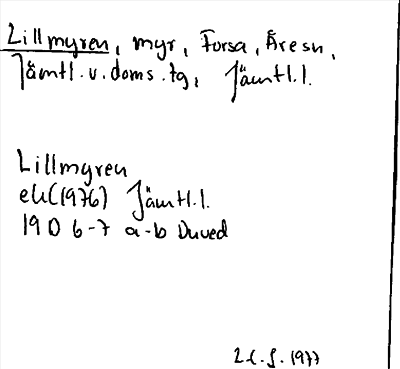 Lillmyren, myr, Forsa, Åre sn,
Jämtl. v. doms. tg, Jämtl. l.
Lillmyren
ek (1976) Jämtl. l.
19 D 6-7 a-b Duved
1977